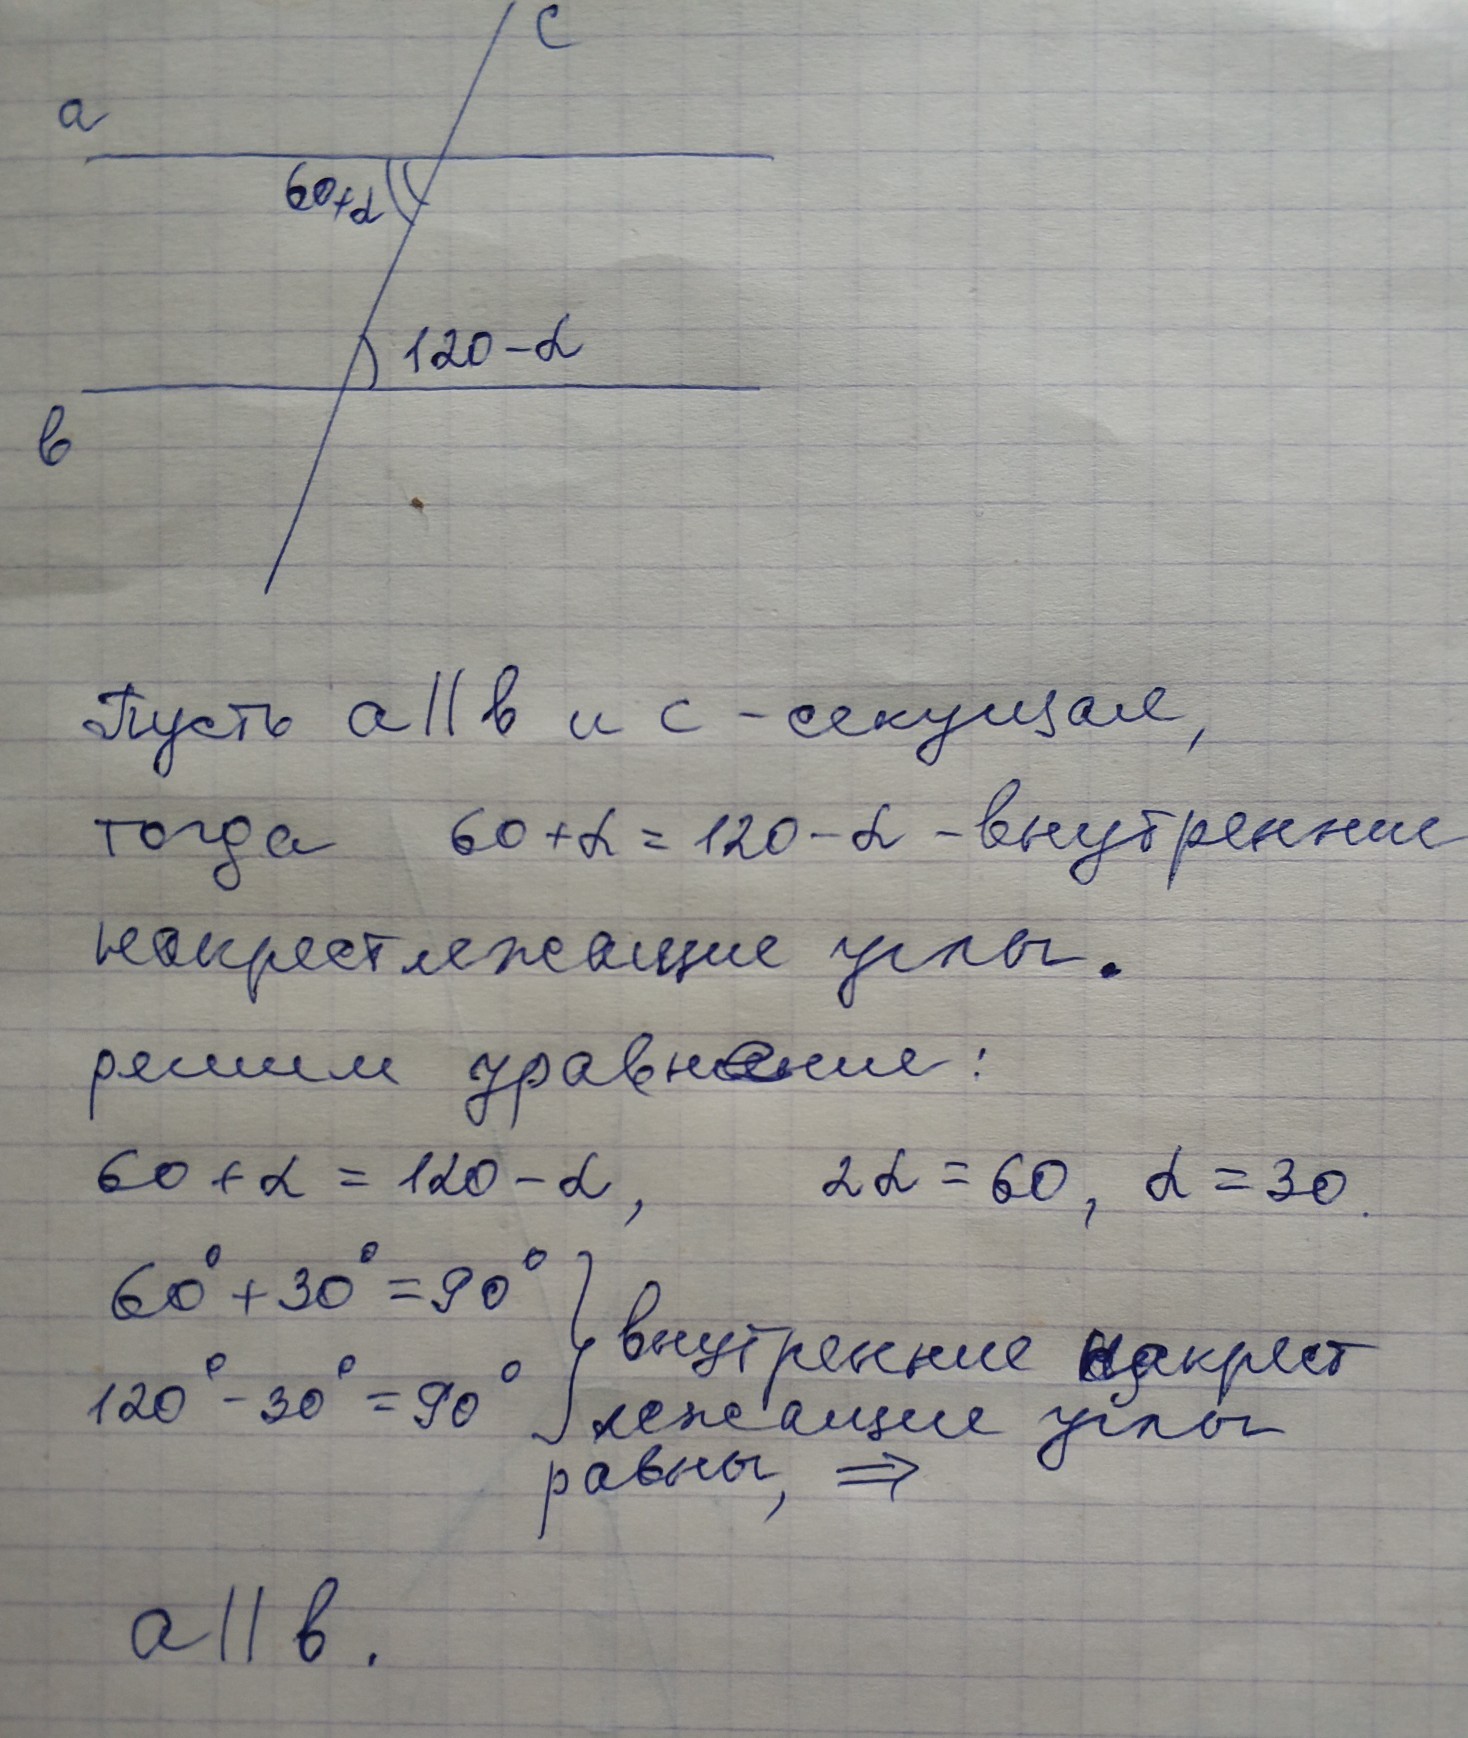 c
a
60+α
120-α
в
Пусть a||в и c - секущая,
тогда 60+α=120-α - внутренние
накрестлежащие углы.
решим уравнение:
60+α=120-α, 2α=60, α=30.
60°+30°=90°
внутренние накрест
120°-30°=90°
лежащие углы
равны, ⇒
a||в.